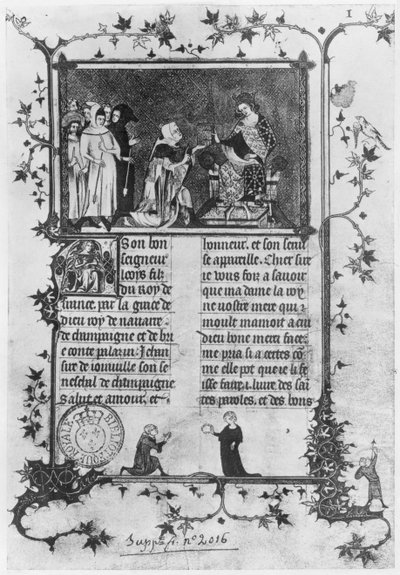 1
A Son bon
seigneur
looys filz
du roy de
france. par la grace de
dieu roy de nauarre.
de champaigne et de bri
e conte palazin. Jehan
sire de ioinuille son se
neschal de champaigne
Salut et amour. et
honneur. et son seruise
appareille. Chier sire
ie vous foiz a sauoir
que ma dame la roy
ne vostre mere qui
moult mamoit a cui
dieu bone merci face.
me pria si a certes com
me elle pot que ie li fe
isse faire .i. liure des sain
tes paroles. et des bons
BIBLIOTHÈQUE ROYALE
Suppt. f. nº 2016